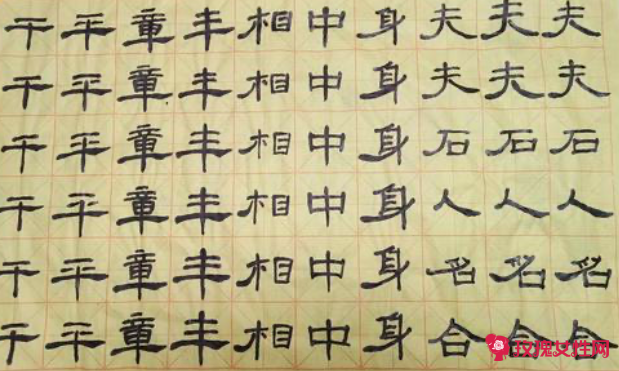 干平章丰相中身夫夫夫
干平章丰相中身夫夫夫
干平章丰相中身石石石
干平章丰相中身人人人
干平章丰相中身名名名
干平章丰相中身合合合
玫瑰女性网